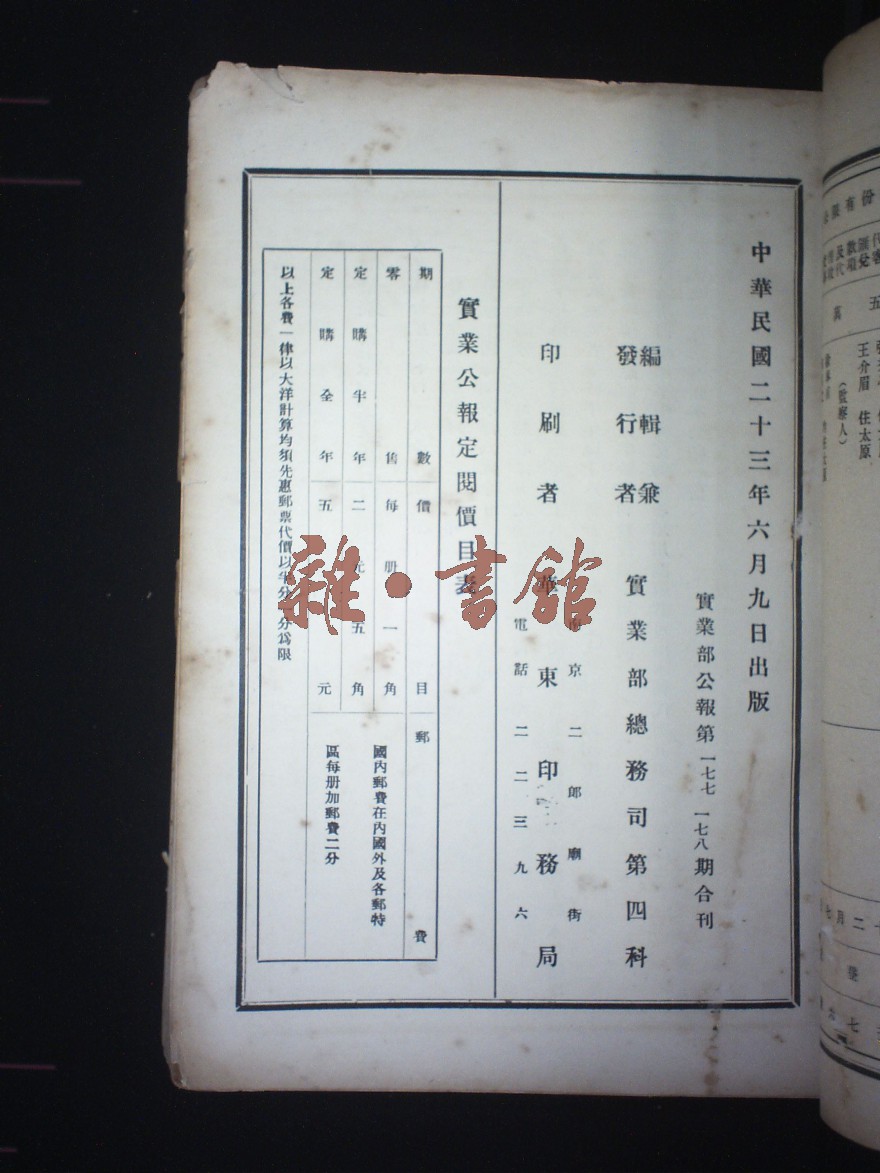 中華民國二十三年六月九日出版
實業部公報第一七七 一七八期合刊
編輯兼
發行者
實業部總務司第四科
印刷者
華東印務局
南京二郎廟街
電話二二三九六
實業公報定閱價目表
期數 價目 郵費
零售 每册一角
定購半年 二元五角
定購全年 五元
國內郵費在內國外及各郵特
區每册加郵費二分
以上各費一律以大洋計算均須先惠郵票代價以半分一分爲限
雜·書館
王介眉 住太原
(監察人)